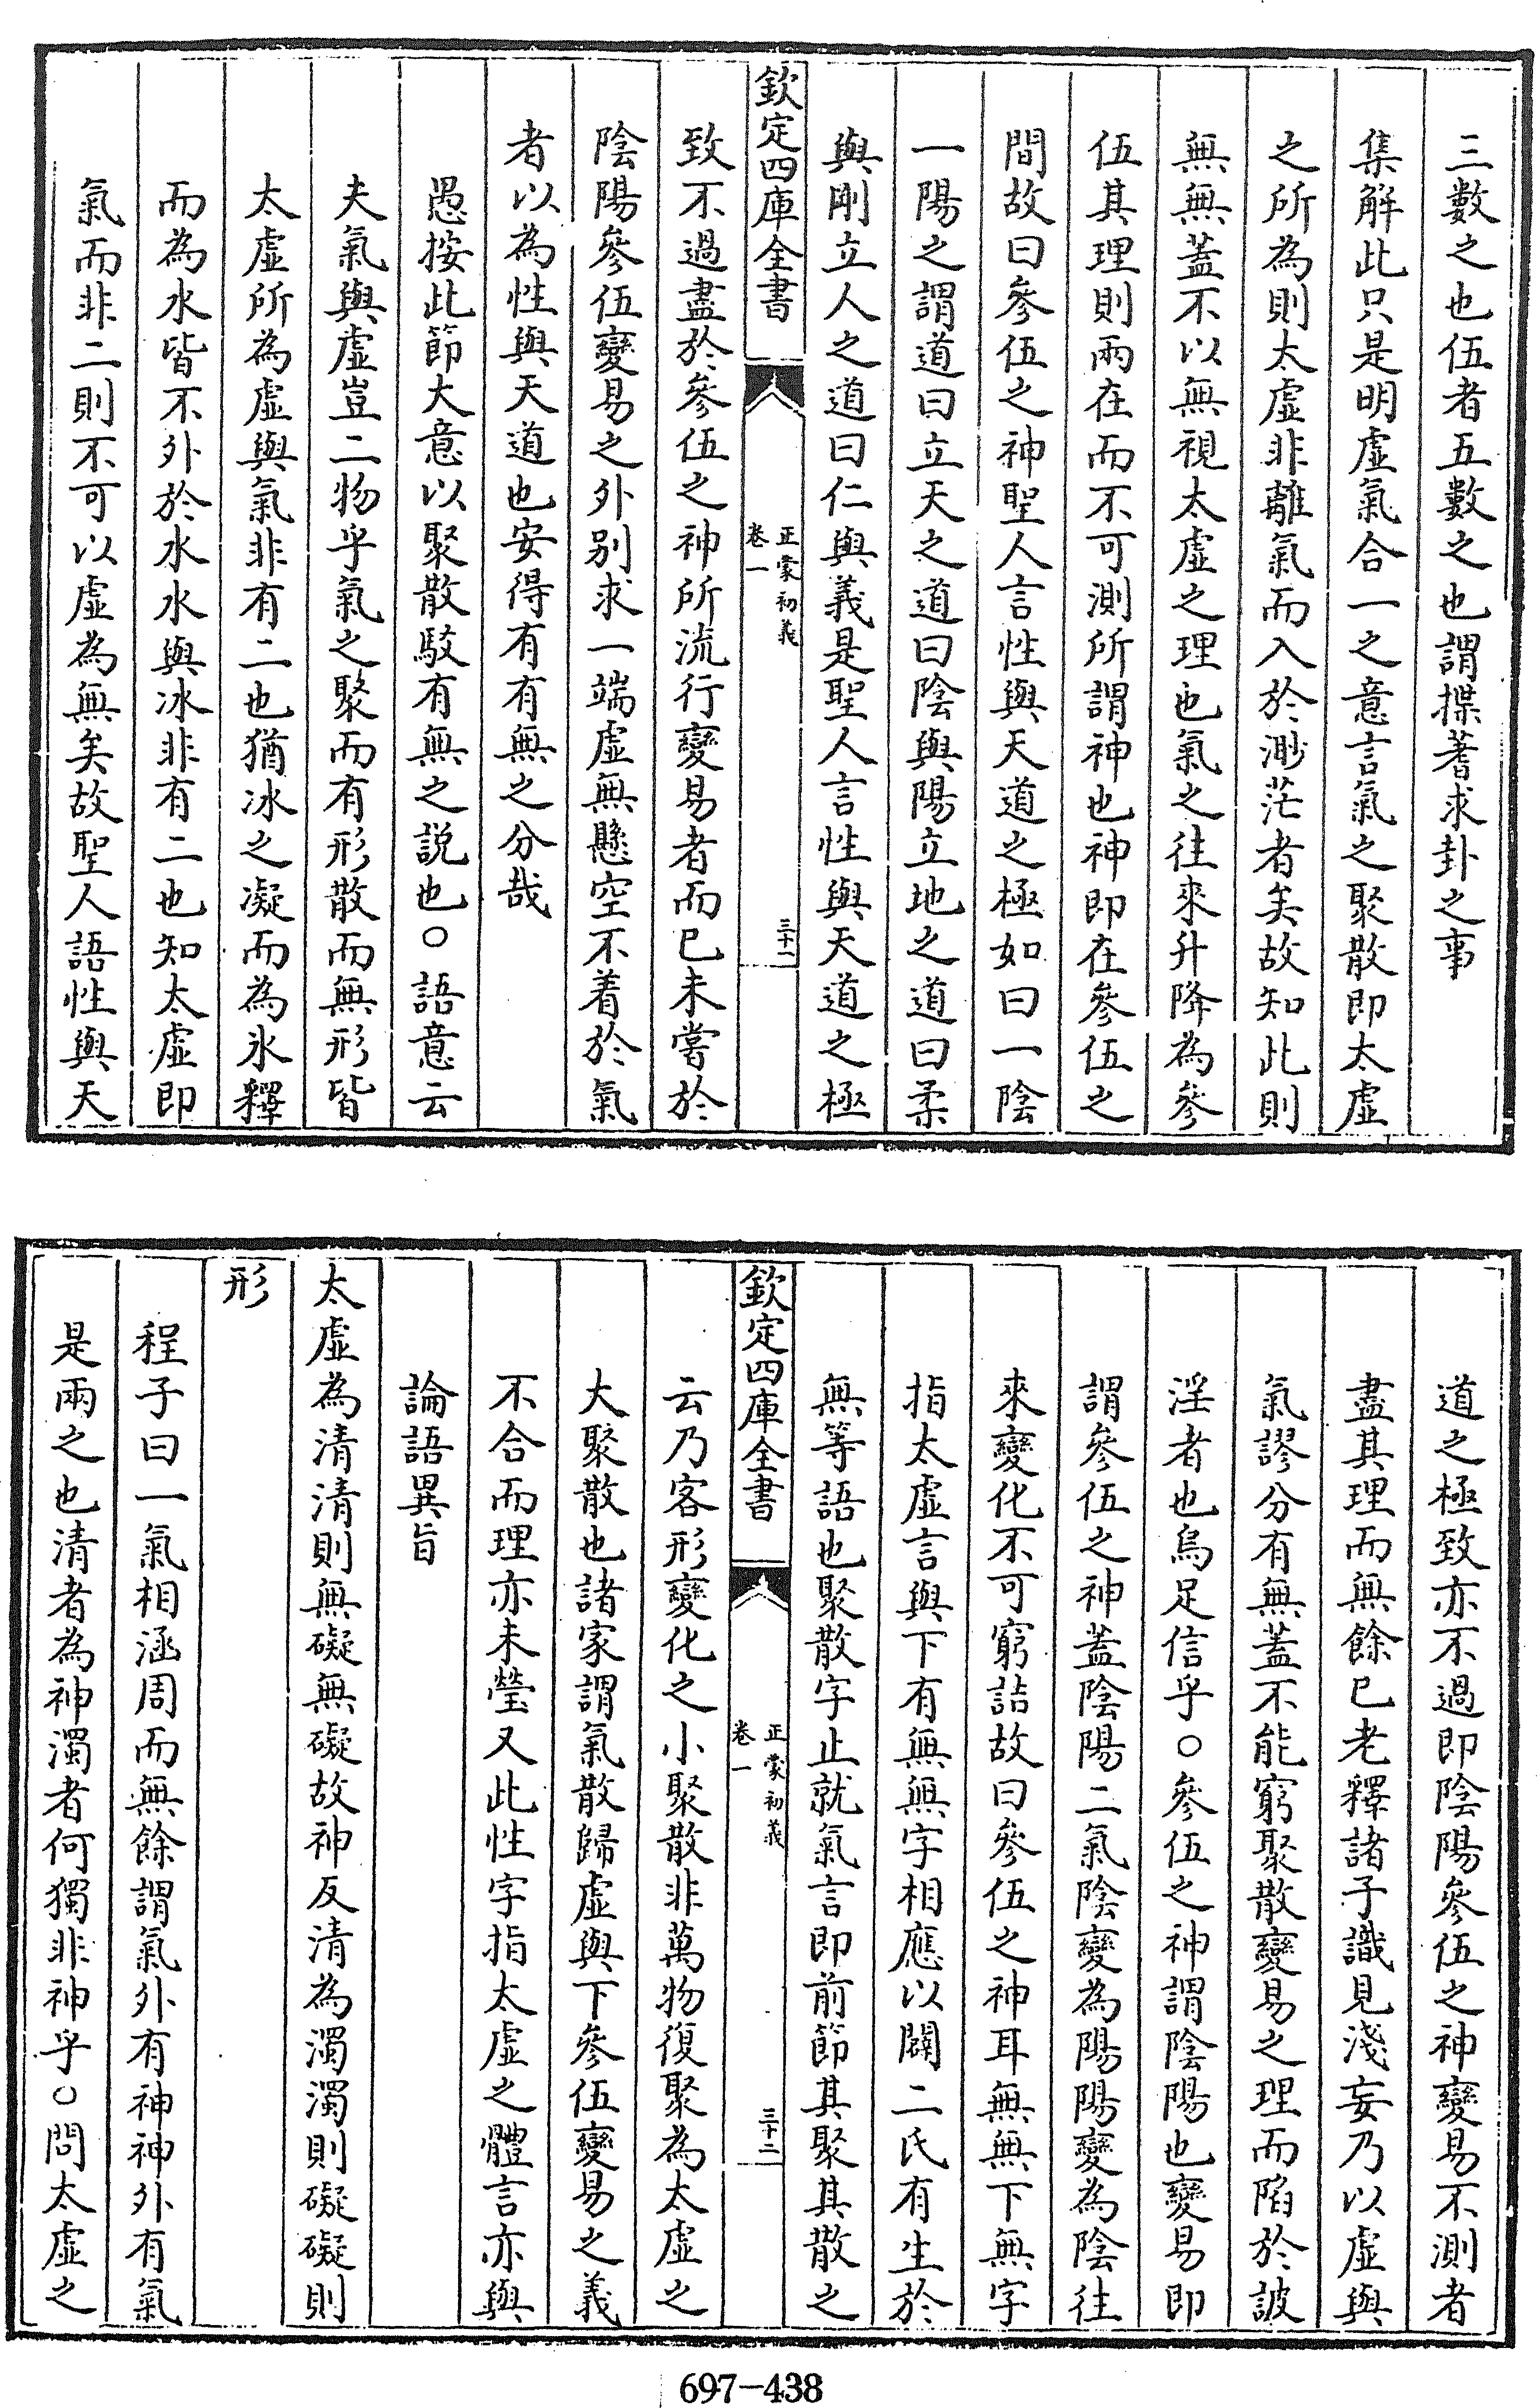 三數之也伍者五數之也謂揲蓍求卦之事
集解此只是明虛氣合一之意言氣之聚散即太虛
之所為則太虛非離氣而入於渺茫者矣故知此則
無無蓋不以無視太虛之理也氣之往來升降為參
伍其理則兩在而不可測所謂神也神即在參伍之
間故曰參伍之神聖人言性與天道之極如曰一陰
一陽之謂道曰立天之道曰陰與陽立地之道曰柔
與剛立人之道曰仁與義是聖人言性與天道之極
欽定四庫全書
正蒙初義
卷一
三十一
致不過盡於參伍之神所流行變易者而已未嘗於
陰陽參伍變易之外别求一端虛無懸空不着於氣
者以為性與天道也安得有有無之分哉
愚按此節大意以聚散駁有無之説也○語意云
夫氣與虛豈二物乎氣之聚而有形散而無形皆
太虛所為虛與氣非有二也猶冰之凝而為氷釋
而為水皆不外於水水與冰非有二也知太虛即
氣而非二則不可以虛為無矣故聖人語性與天
道之極致亦不過即陰陽參伍之神變易不測者
盡其理而無餘已老釋諸子識見淺妄乃以虛與
氣謬分有無蓋不能窮聚散變易之理而陷於詖
淫者也烏足信乎○參伍之神謂陰陽也變易即
謂參伍之神蓋陰陽二氣陰變為陽陽變為陰往
來變化不可窮詰故曰參伍之神耳無無下無字
指太虛言與下有無無字相應以闢二氏有生於
無等語也聚散字止就氣言即前節其聚其散之
欽定四庫全書
正蒙初義
卷一
三十二
云乃客形變化之小聚散非萬物復聚為太虛之
大聚散也諸家謂氣散歸虛與下參伍變易之義
不合而理亦未瑩又此性字指太虛之體言亦與
論語異旨
太虛為清清則無礙無礙故神反清為濁濁則礙礙則
形
程子曰一氣相涵周而無餘謂氣外有神神外有氣
是兩之也清者為神濁者何獨非神乎○問太虛之
697-438